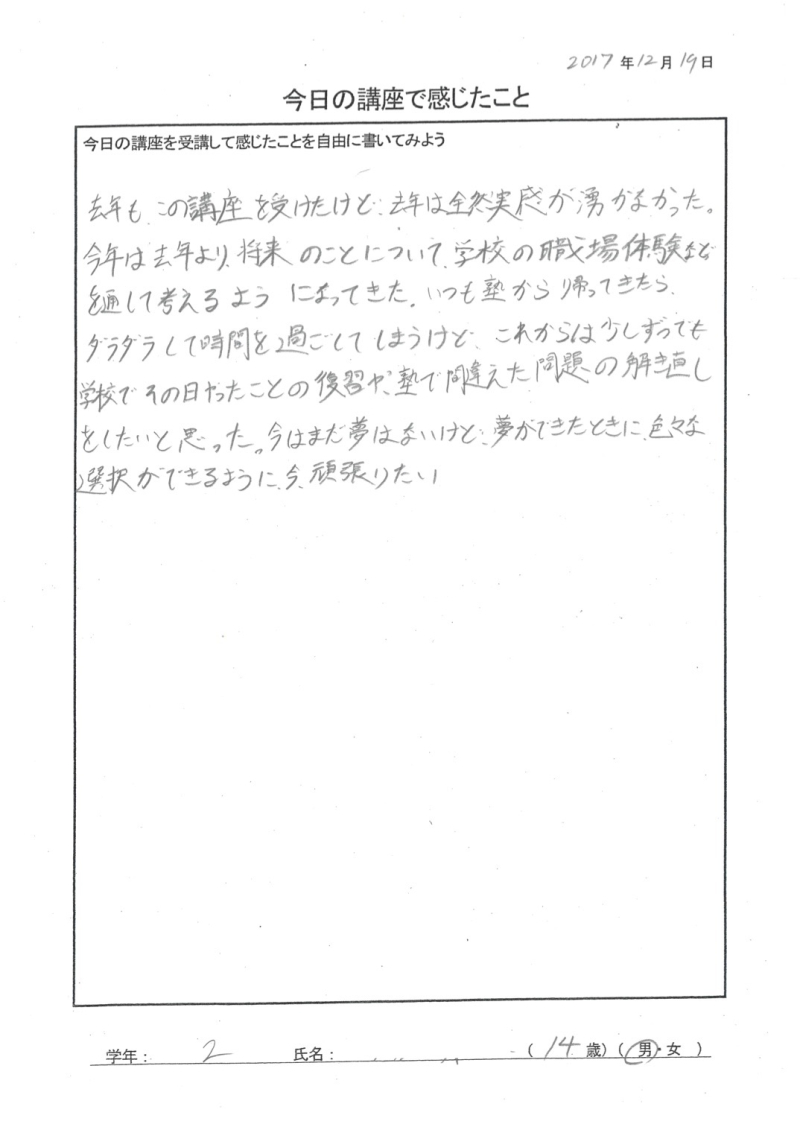 2017年12月19日
今日の講座で感じたこと
今日の講座を受講して感じたことを自由に書いてみよう
去年も、この講座を受けたけど、去年は全然実感が湧かなかった。
今年は去年より、将来のことについて、学校の職場体験など
を通して考えるようになってきた。いつも塾から帰ってきたら、
ダラダラして時間を過ごしてしまうけど、これからは少しずつでも
学校でその日やったことの復習や、塾で間違えた問題の解き直し
をしたいと思った。今はまだ夢はないけど、夢ができたときに、色々な
選択ができるように、今、頑張りたい
学年： 2 氏名： （ 14 歳）（ 男・女 ）